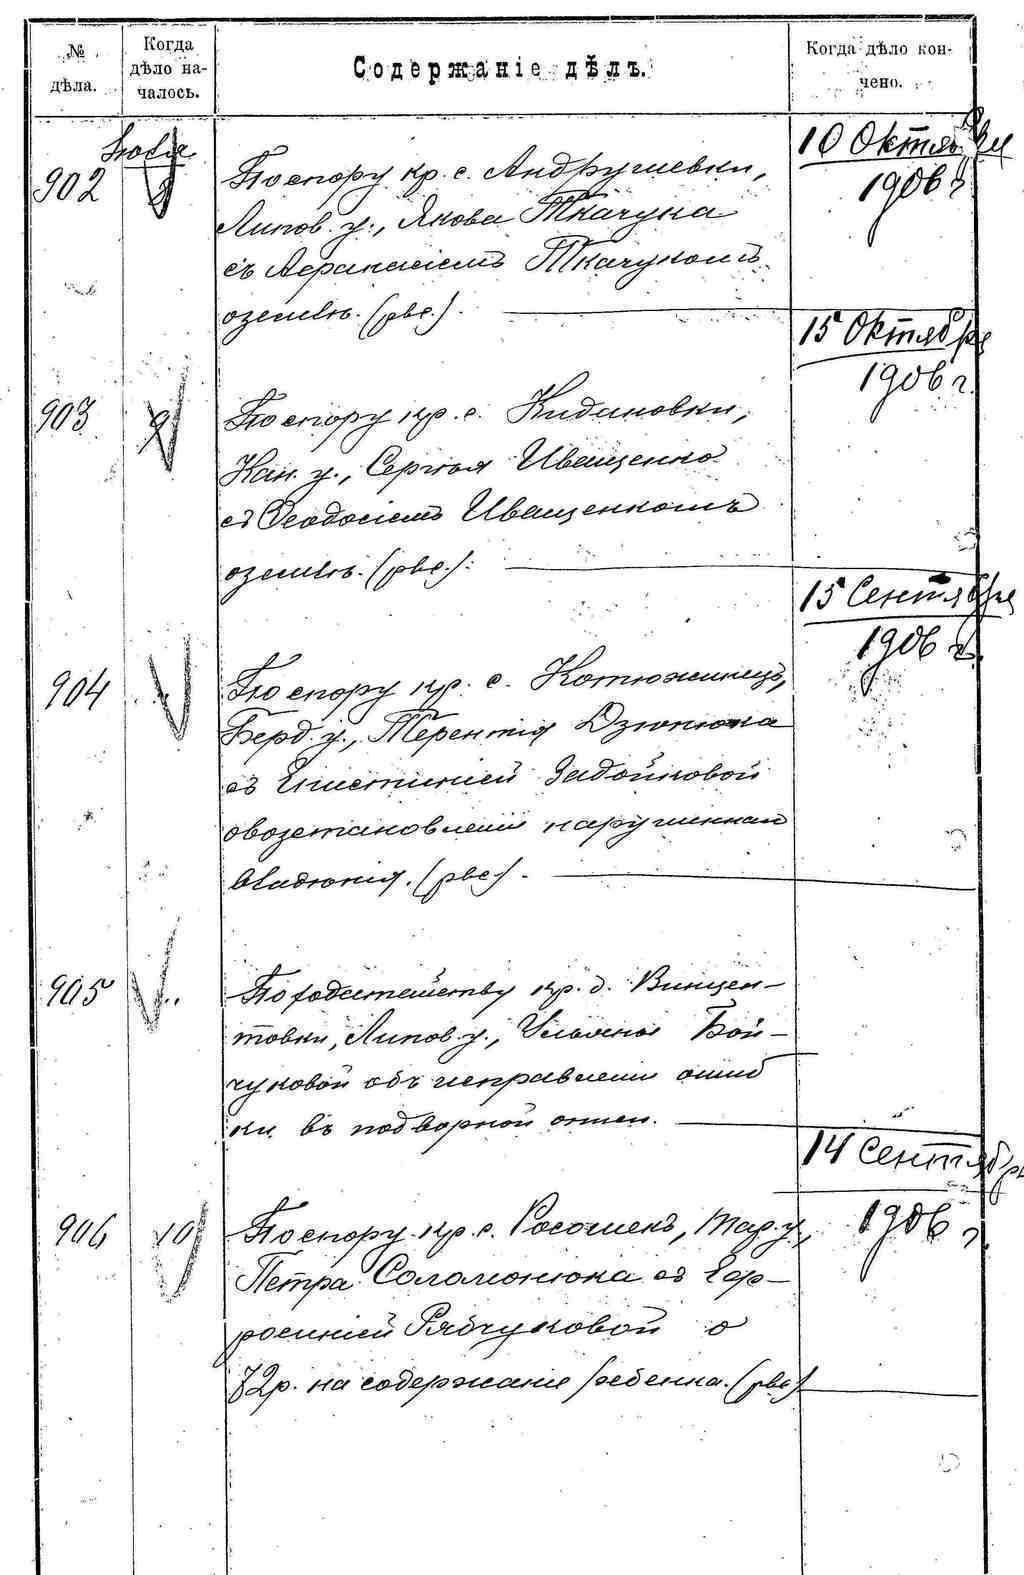 № дѣла.
Когда дѣло на-
чалось.
Содержаніе дѣлъ.
Когда дѣло кон-
чено.
902
9
По спору кр. с. Андрушевки,
Липов. у., Якова Ткачука
съ Афанасіемъ Ткачукомъ
о землѣ. (рвс.).
10 Октября
1906 г.
903
9
По спору кр. с.
Кан. у., Сергѣя Иващенко
съ Ѳеодосіемъ Иващенкомъ
о землѣ. (рвс.).
15 Октября
1906 г.
904
По спору кр. с. Котюжинецъ,
Берд. у., Терентія Дзюнюка
съ Задойновой
о возстановленіи нарушеннаго
владѣнія. (рвс).
15 Сентября
1906 г.
905
По ходатайству кр. д. Винцен-
товки, Липов. у., Ульяны Бой-
чуковой объ исправленіи ошиб
ки въ подворной описи.
906
10
По спору кр. с. Росошекъ, Тар. у.,
Петра Соломонюка съ Евф-
росиніей Рябчуковой о
72 р. на содержаніе ребенка. (рвс)
14 Сентября
1906 г.